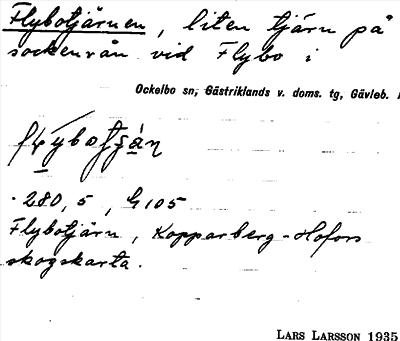 Flybotjärnen, liten tjärn på
sockenrån vid Flybo i
Ockelbo sn, Gästriklands v. doms. tg, Gävleb.
280,5, G105
Flybotjärn, Kopparberg-Hofors
skogskarta.
LARS LARSSON 1935